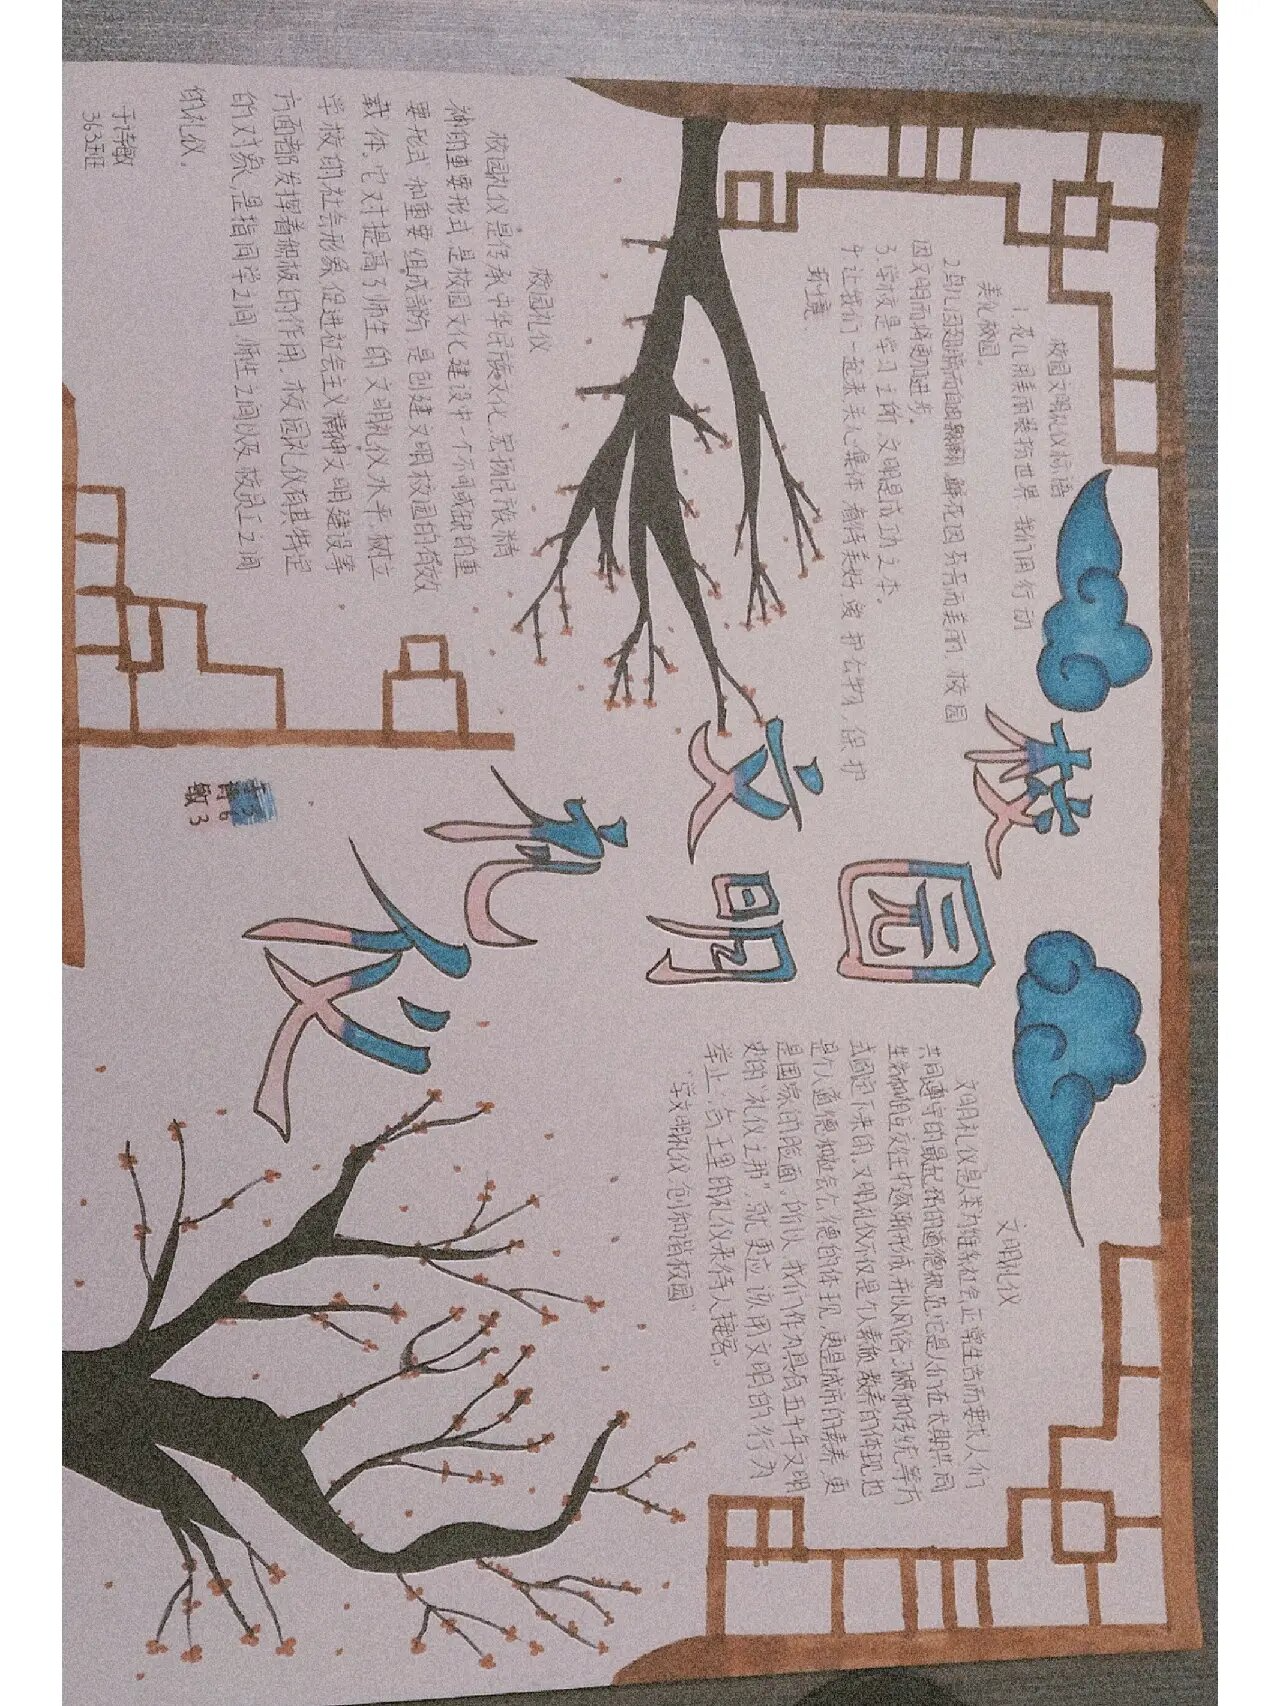 校园文明礼仪
校园文明礼仪标语
1.花儿用美丽装扮世界,我们用行动
美化校园。
2.鸟儿因翱翔而翩翩,鲜花因芬芳而美丽,校园
因文明而将更加进步。
3.学校是学习之所,文明是成功之本。
4.让我们一起来关心集体,看待美好,爱护公物,保护
环境。
校园礼仪
校园礼仪是传承中华民族文化,宏扬民族精
神的重要形式,是校园文化建设中一个不可或缺的重
要形式和重要组成部分,是创建文明校园的有效
载体。它对提高了师生的文明礼仪水平,树立
学校的社会形象,促进社会主义精神文明建设等
方面都发挥着积极的作用。校园礼仪有其特定
的对象,是指同学之间,师生之间以及校员工之间
的礼仪。
于诗敏
363班
文明礼仪
文明礼仪是人类为维系社会正常生活而要求人们
共同遵守的最起码的道德规范,它是人们在长期共同
生活和相互交往中逐渐形成,并以风俗、习惯和传统等方
式固定下来的。文明礼仪不仅是个人素质、教养的体现,也
是个人道德和社会公德的体现,更是城市的素养,更
是国家的脸面。所以,我们作为具有五千年文明
史的"礼仪之邦",就更应该用文明的行为
举止,合乎
的礼仪来待人接客。
"学文明礼仪 创和谐校园"
363